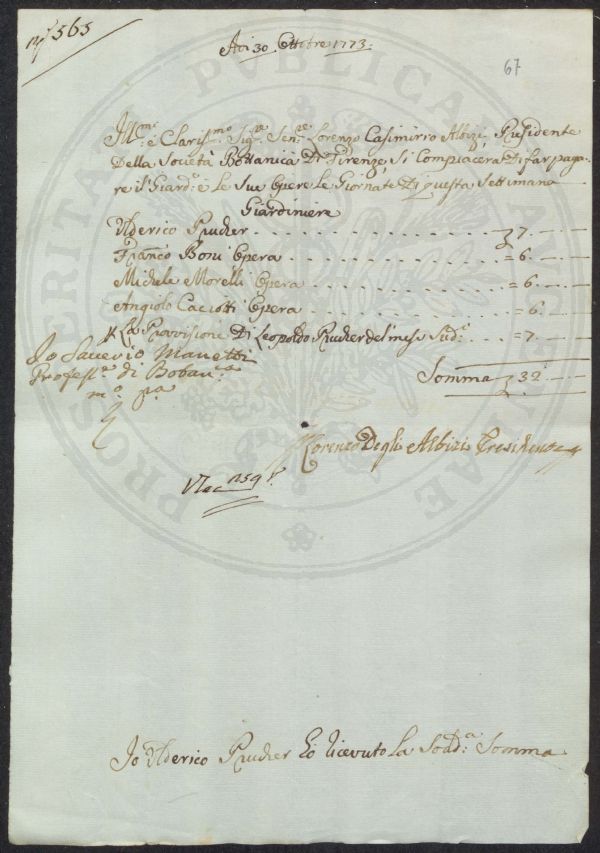 N.º 565
Adi 30 Ottobre 1773:
67
Ill.mo e Claris.mo Sig.re Sen.re Lorenzo Casimirro Albizi Presidente
Della Società Bottanica Di Firenze, Si Compiacerà Di far paga-
re il Giard.e e le Sue Opere le Giornate Di questa Settimana
Giardiniere
Ulderico Prucher . . . . . . . . . . . . 7. —
Franc.o Boni Opera . . . . . . . . . . . = 6. —
Michele Morelli Opera . . . . . . . . . = 6. —
Angiolo Caciotti Opera . . . . . . . . . = 6. —
p La Provvisione Di Leopoldo Prucher del mese Sud.o — = 7. —
Io Saverio Manetti
Profess.re di Botan.ca
m.o p.a
Somma 32 —
Lorenzo Degli Albizi Presidente
259
Io Ulderico Prucher Ho ricevuto La Sodd.a Somma
PROSPERITATI PUBLICAE AUCTAE